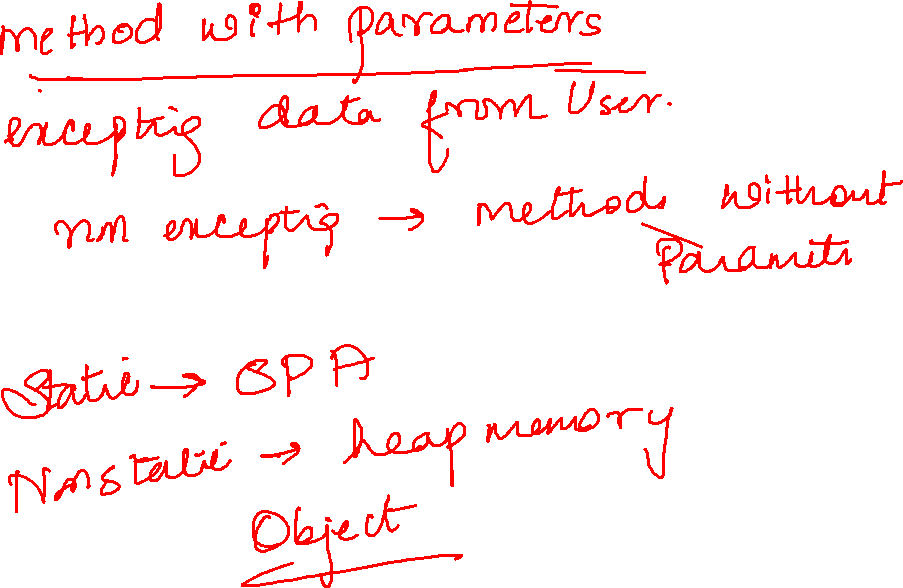 method with parameters
excepting data from User.
non excepting → methods without
Parametr
Static → SPA
Nonstatic → heap memory
Object